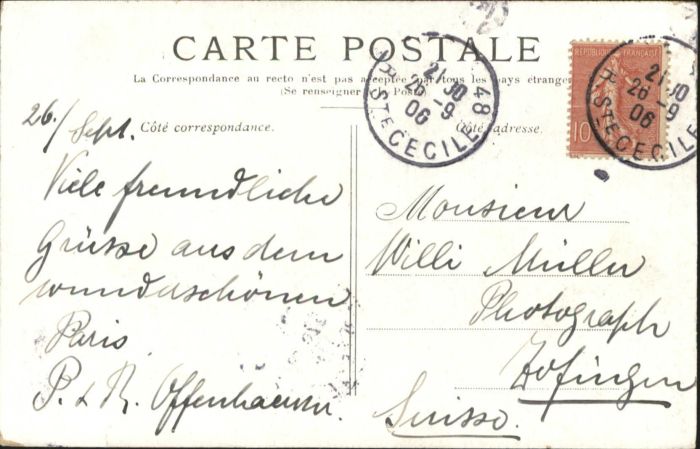 CARTE POSTALE
La Correspondance au recto n'est pas acceptée par tous les pays étrangers
(Se renseigner à la Poste)
Côté correspondance.
Côté adresse.
RÉPUBLIQUE FRANÇAISE
10
R. STE CECILE 48
21 30
26 - 9
06
R. STE CECILE
21 30
26 - 9
06
26./Sept.
Viele freundliche
Grüsse aus dem
wunderschönen
Paris
P. & R. Offenhäuser.
Monsieur
Willi Müller
Photograph
Zofingen
Suisse.